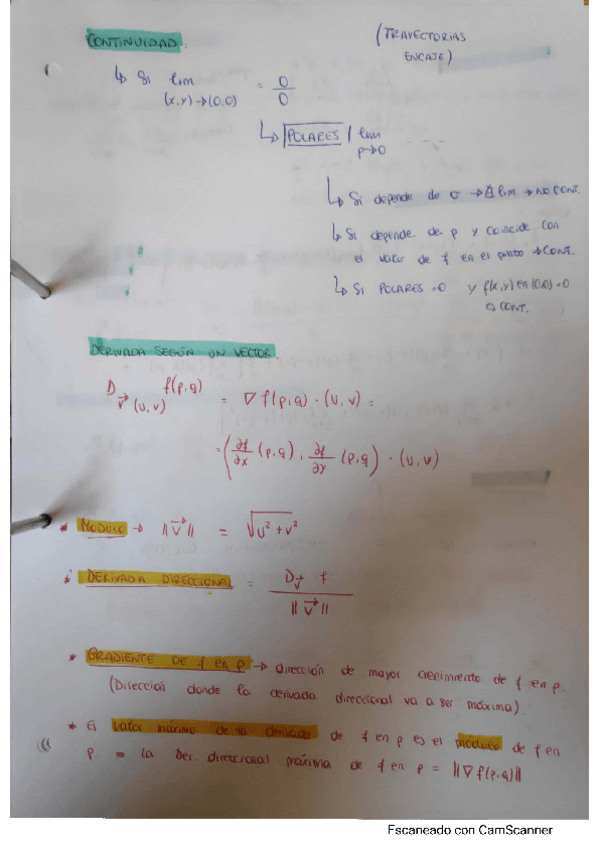 CONTINUIDAD.
(TRAYECTORIAS
ENCAJE)
↳ Si lim (x,y)→(0,0) = 0/0
↳ POLARES / lim ρ→0
↳ Si depende de σ → ∄ lim → NO CONT.
↳ Si depende de ρ y coincide con
el valor de f en el punto → CONT.
↳ Si POLARES = 0 y f(x,y) en (0,0) = 0
es CONT.
DERIVADA SEGÚN UN VECTOR.
D v⃗ (u,v) f(p,q) = ∇ f(p,q) · (u,v) =
= (∂f/∂x (p,q), ∂f/∂y (p,q)) · (u,v)
* MODULO → ||v⃗|| = √u² + v²
* DERIVADA DIRECCIONAL = D v⃗ f / ||v⃗||
* GRADIENTE DE f en p → dirección de mayor crecimiento de f en p.
(Dirección donde la derivada direccional va a ser máxima).
* El valor máximo de la derivada de f en p es el módulo de f en
p. = la Der. direccional máxima de f en p = ||∇ f(p,q)||
Escaneado con CamScanner